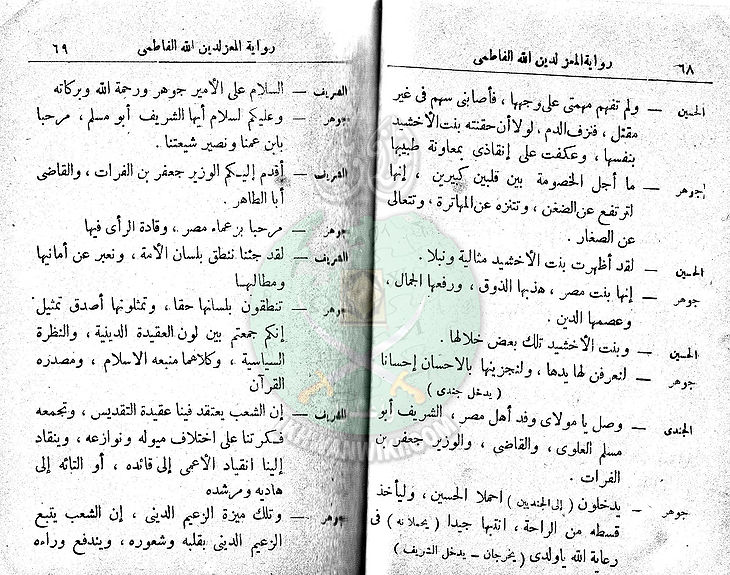 رواية المعز لدين الله الفاطمى ٦٨
الحسين — ولم تفهم مهمتى على وجهها، فأصابنى سهم فى غير
مقتل، فنزف الدم، لولا أن حقنته بنت الأخشيد
بنفسها، وعكفت على إنقاذى بمعاونة طبيبها
جوهر — ما أجل الخصومة بين قلبين كبيرين، إنها
لترتفع عن الضغن، وتتنزه عن المهاترة، وتتعالى
عن الصغار.
الحسين — لقد أظهرت بنت الأخشيد مثالية ونبلا.
جوهر — إنها بنت مصر، هذبها الذوق، ورفعها الجمال،
وعصمها الدين.
الحسين — وبنت الأخشيد تلك بعض خلالها.
جوهر — لنعرفن لها يدها، ولنجزينها بالاحسان إحسانا
(يدخل جندى)
الجندى — وصل يا مولاى وفد أهل مصر، الشريف أبو
مسلم العلوى، والقاضى، والوزير جعفر بن
الفرات.
جوهر — يدخلون (إلى الجنديين) احملا الحسين، وليأخذ
قسطه من الراحة، انتبها جيدا (يحملانه) فى
رعاية الله ياولدى (يخرجان – يدخل الشريف)
رواية المعز لدين الله الفاطمى ٦٩
الشريف — السلام على الأمير جوهر ورحمة الله وبركاته
جوهر — وعليكم لسلام أيها الشريف أبو مسلم، مرحبا
بابن عمنا ونصير شيعتنا.
الشريف — أقدم إليكم الوزير جعفر بن الفرات، والقاضى
أبا الطاهر.
جوهر — مرحبا بزعماء مصر، وقادة الرأى فيها
الشريف — لقد جئنا ننطق بلسان الأمة، ونعبر عن أمانيها
ومطالبها
جوهر — تنطقون بلسانها حقا، وتمثلونها أصدق تمثيل
إنكم جمعتم بين لون العقيدة الدينية، والنظرة
السياسية، وكلاهما منبعه الاسلام، ومصدره
القرآن
الشريف — إن الشعب يعتقد فينا عقيدة التقديس، وتجمعه
فكرتنا على اختلاف ميوله ونوازعه، وينقاد
إلينا انقياد الأعمى إلى قائده، أو التائه إلى
هاديه ومرشده
جوهر — وتلك ميزة الزعيم الدينى، إن الشعب يتبع
الزعيم الدينى بقلبه وشعوره، ويندفع وراءه
IKHWANWIKI.COM